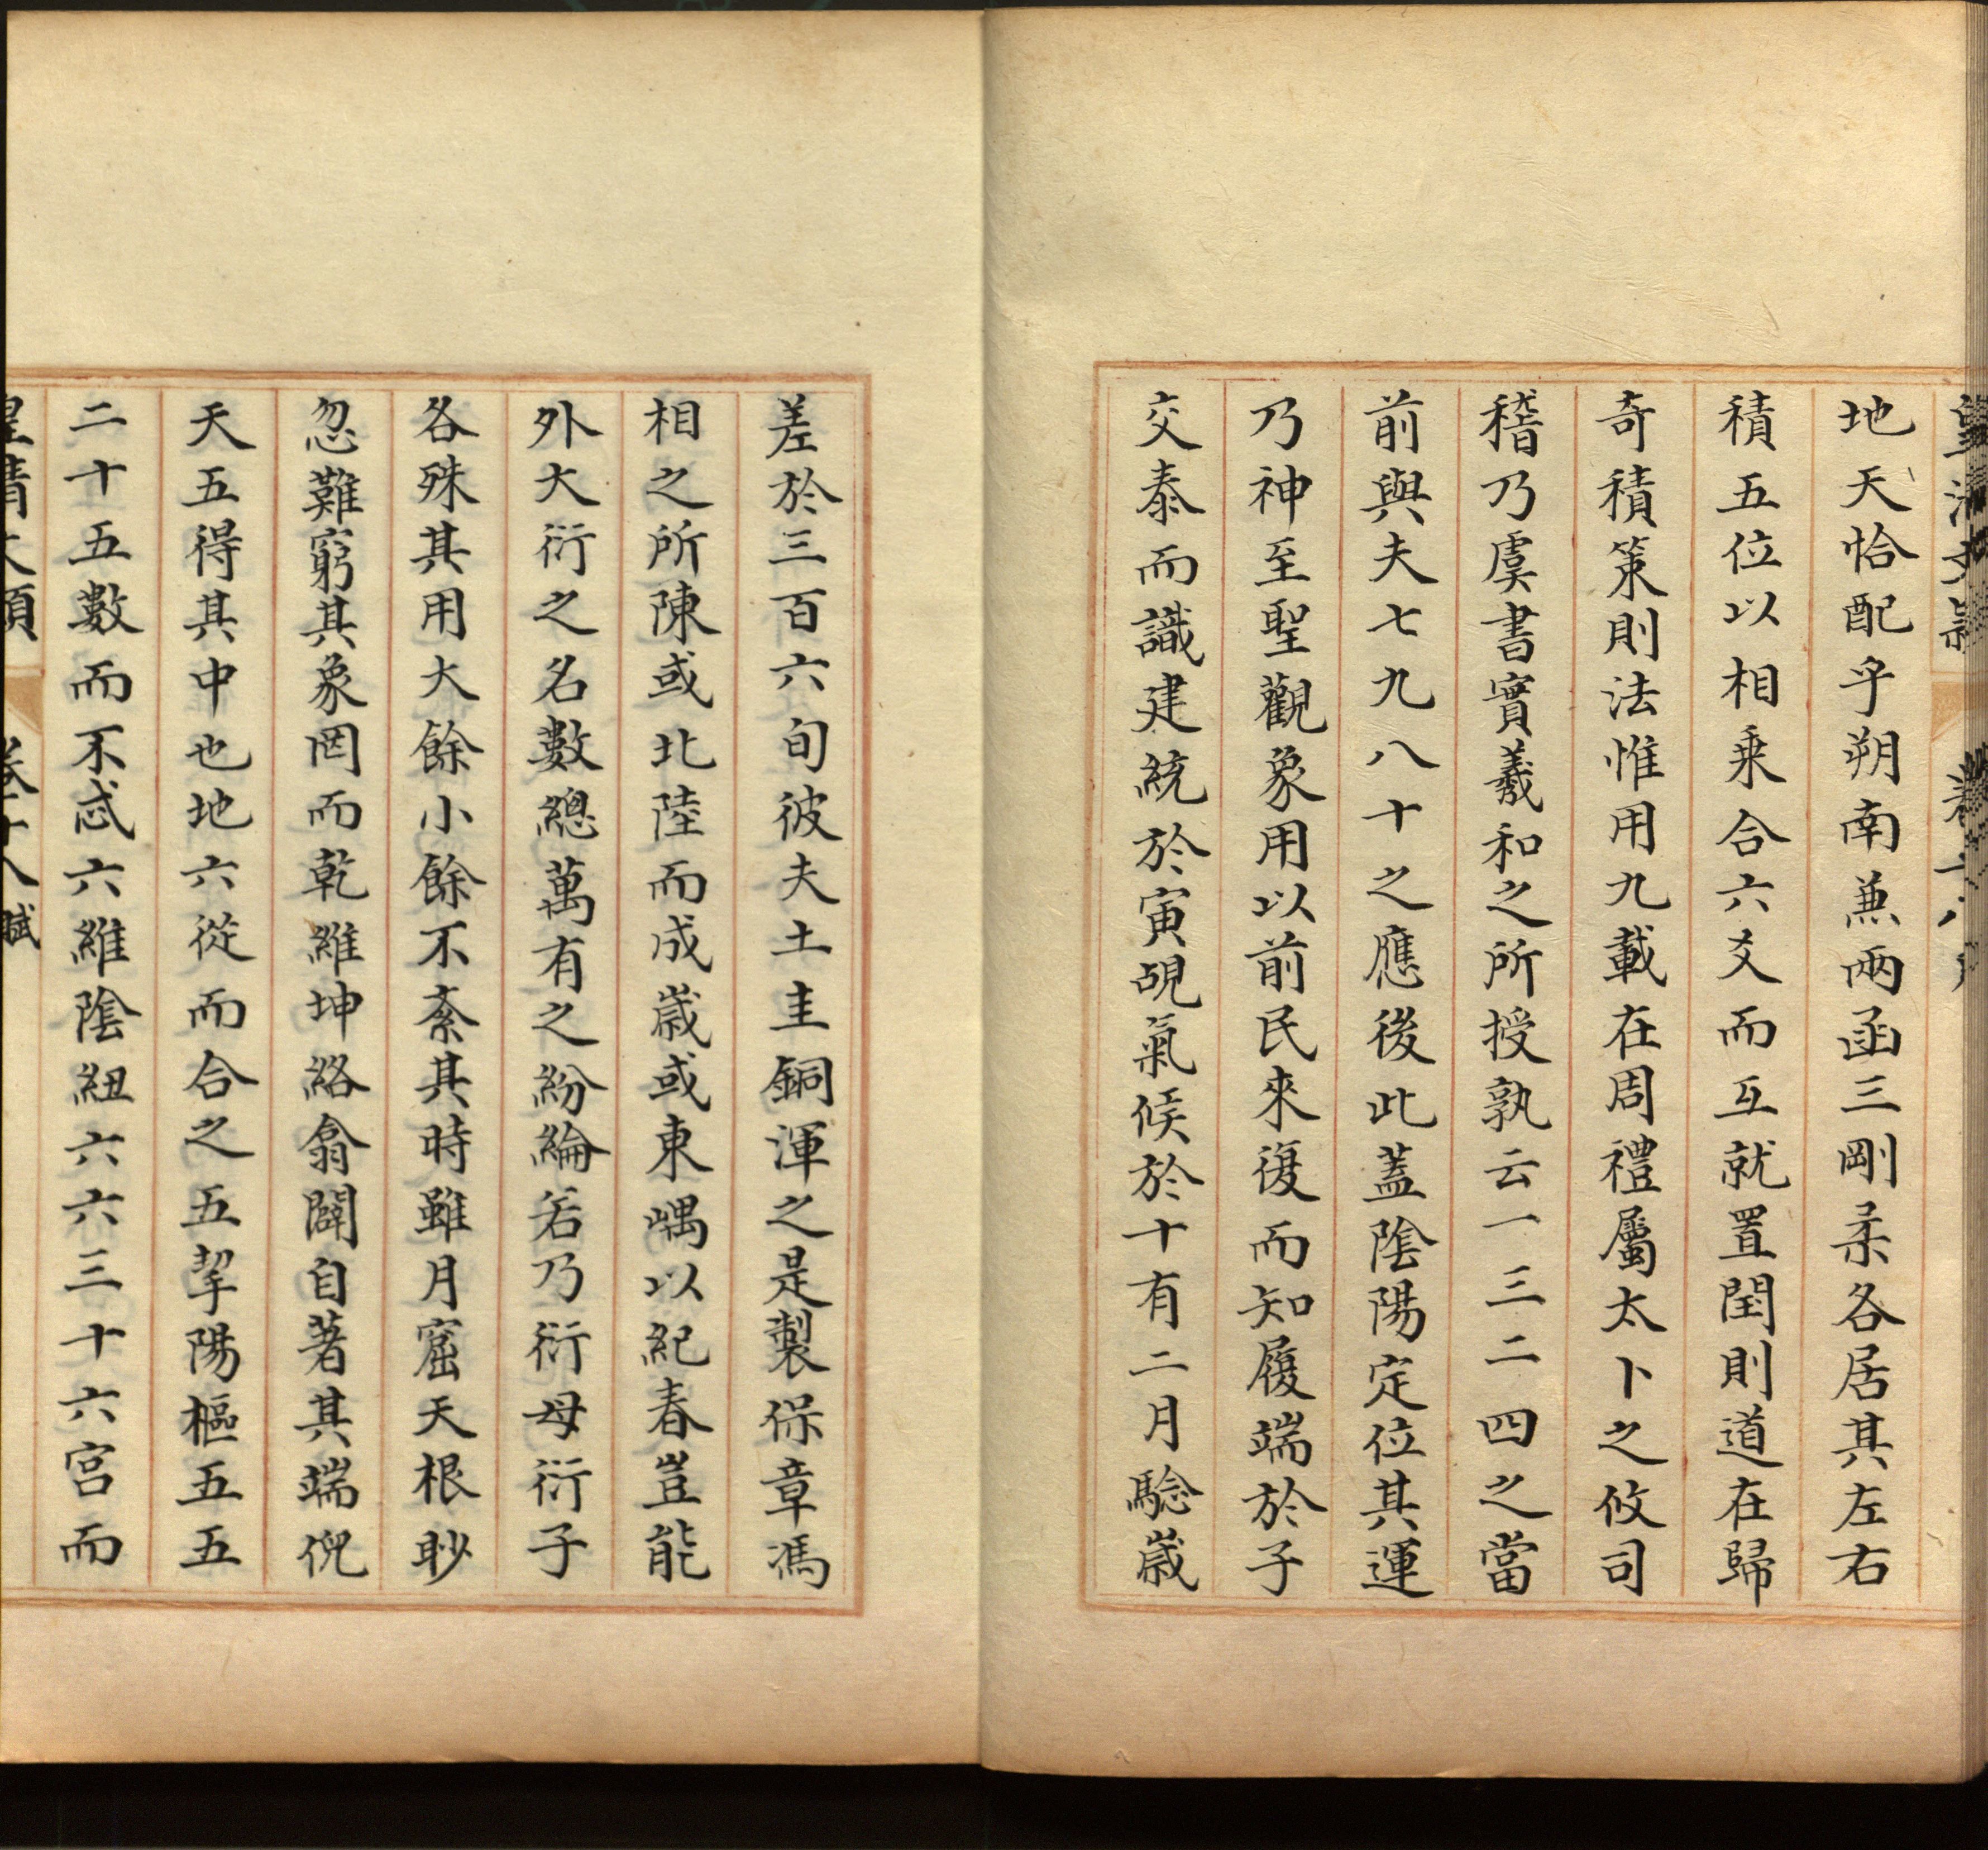 皇清文穎 卷六八
地天恰配乎朔南兼兩函三剛柔各居其左右
積五位以相乗合六爻而互就置閏則道在歸
奇積策則法惟用九載在周禮屬太卜之攸司
稽乃虞書實羲和之所授孰云一三二四之當
前與夫七九八十之應後此蓋陰陽定位其運
乃神至聖觀象用以前民來復而知履端於子
交泰而識建統於寅覘氣候於十有二月騐歲
差於三百六旬彼夫土圭銅渾之是製保章馮
相之所陳或北陸而成歲或東嵎以紀春豈能
外大衍之名數總萬有之紛綸若乃衍母衍子
各殊其用大餘小餘不紊其時雖月窟天根眇
忽難窮其象罔而乾維坤絡翕闢自著其端倪
天五得其中也地六從而合之五挈陽樞五五
二十五數而不忒六維陰紐六六三十六宮而
皇清文穎 卷十八 賦